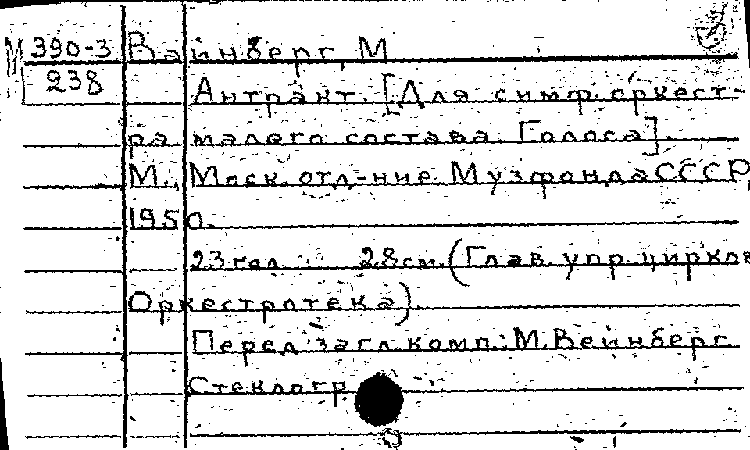 М 390-3 Вайнберг, М
238 Антракт. [Для симф. оркест-
ра малого состава. Голоса].
М., Моск. отд-ние Музфонда СССР,
1950.
23 гол. 28 см. (Глав. упр. цирков
Оркестротека).
Перед загл. комп.: М. Вейнберг
Стеклогр.